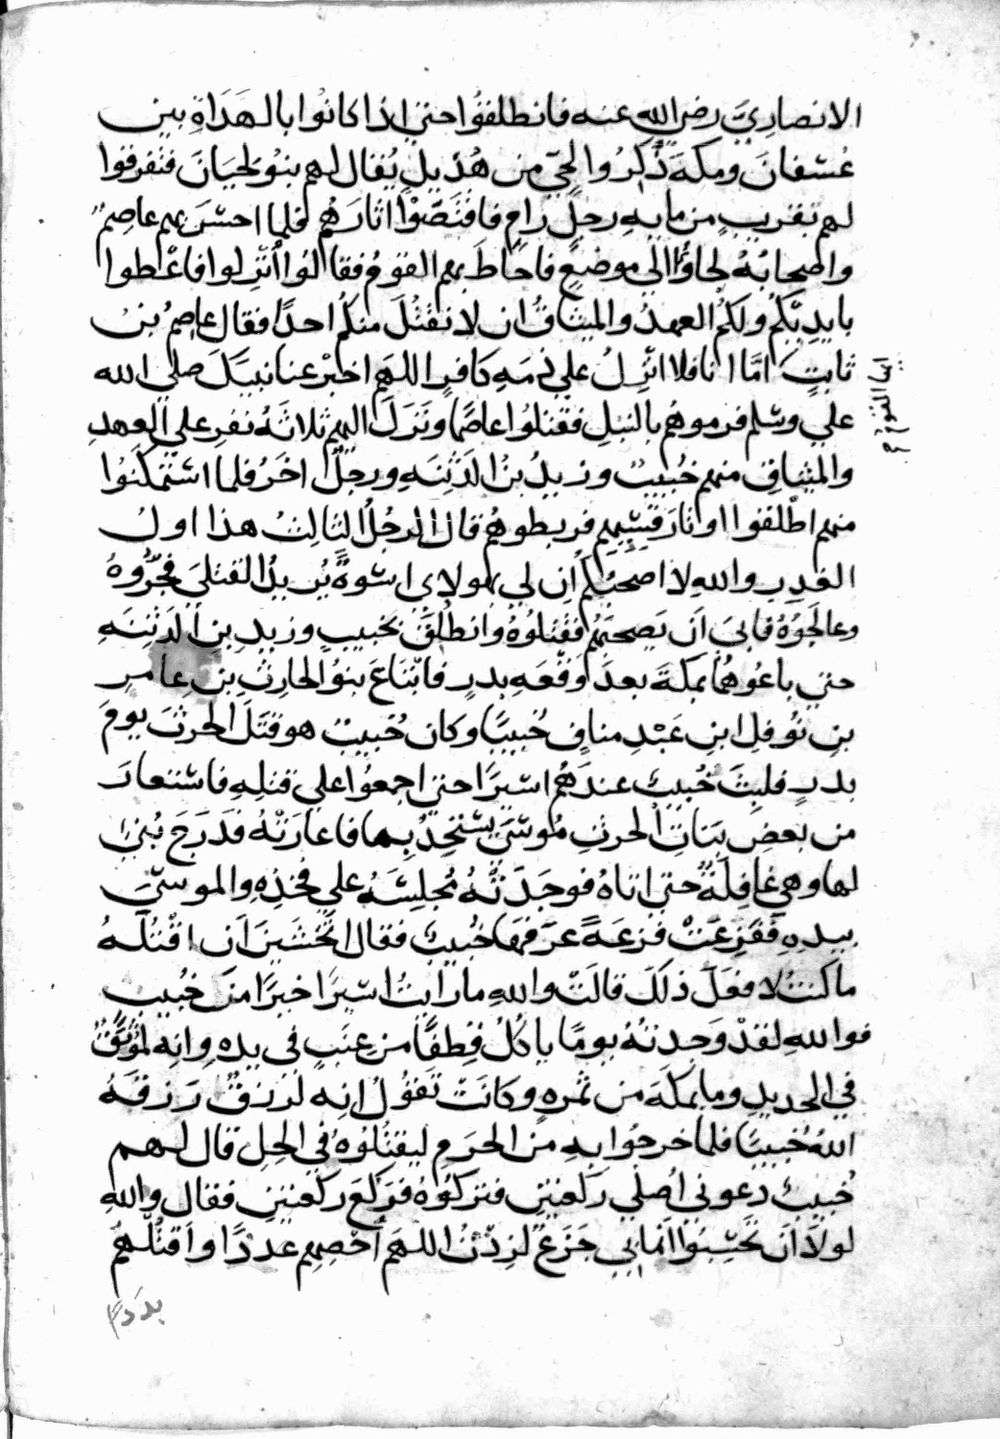 الانصاري رضي الله عنه فانطلقوا حتي اذا كانوا بالهَدَاةِ بين
عُسفانَ ومكة ذُكِرُوا لحيّ من هُذيلٍ يُقال لهم بنوُ لحيانَ فتفرقوا
لهم بقريبٍ من مايه رجلٍ رامٍ فاقتصّوا اثارَهُم فلما احسّ بهم عاصِم
واصحابُهُ لجاؤُا الي موضعٍ فاحاطَ بهم القومُ فقالوا انزلوا فاعطوا
بايديكم ولكم العهدُ والميثاقُ ان لا نقتُلَ منكم احدًا فقال عاصِمُ بنُ
ثابتٍ امّا انا فلا انزِلُ علي ذمةِ كافرٍ اللهم اخبِرْ عنا نبيكَ صلي الله
عليه وسلم فرموهُم بالنبلِ فقتلوُا عاصمًا ونَزَلَ اليهم ثلاثةُ نفرٍ علي العهدِ
والميثاقِ منهم خُبيبٌ وزيدُ بنُ الدَثِنَهِ ورجلٌ اخَرُ فلما استمكنُوا
منهم اطلقوا اوتارَ قِسِيِّهِم فربطوهُم قال الرجُلُ الثالِثُ هذا اولُ
الغدرِ والله لا اصحبُكُم ان لي بهولاي اسوَةً يُريدُ القتلي فجرُّوهُ
وعالجَوُهُ فابيَ اَن يَصحبَهُم فقتلوُهُ وانطُلِقَ بخبيبٍ وزيدِ بنِ الدَثِنَهِ
حتي باعُوهُما بمكةَ بعدَ وَقْعَهِ بدرٍ فابْتَاعَ بنوُ الحارِثِ بنِ عامرِ
بنِ نوُفلِ ابنِ عَبْدِ منافٍ خُبيبًا وكان خُبيبٌ هو قَتَلَ الحرثَ يومَ
بدرٍ فلبِثَ خُبيبٌ عندَهُم اسيرًا حتي اجمعوُا علي قتلِهِ فاستعارَ
من بعضِ بَنَاتِ الحرثِ مُوسَيَ يستحِدُّ بها فاعارَتْهُ فدَرَجَ بُنيٌ
لها وهي غافِلَةٌ حتي اتاهُ فوجَدَتْهُ مُجلِسَهُ علي فخذِهِ والموسَيَ
بيدِهِ فَفَزِعَتْ فزعَةً عرَفَهَا خُبيبٌ فقال اتَخْشَينَ اَن اقْتُلَهُ
ما كنتُ لافعَلَ ذلكَ قالَتْ والله ما رايتُ اسيرًا خيرًا من خُبيبٍ
فوالله لقدْ وَجدتُهُ يومًا ياكُلُ قِطفًا من عِنَبٍ في يدِهِ وانه لمُوثَقٌ
في الحديدِ وما بمكةَ من ثمرهٍ وكانَتْ تَقوُلُ انه لَرِزقٌ رَزَقَهُ
اللهُ خُبيبًا فلما خرجوُا بهِ من الحرَمِ ليقتلُوُهُ في الحِلِ قال لهم
خُبيبٌ دعوني اُصلي ركعتينِ فتركوُهُ فرَكَعَ ركعتينِ فقال والله
لولا اَن تحسِبُوا اَنما بي جَزَعٌ لزِدْتُ اللهم احْصِهِم عددًا واقتُلْهُم
بدَدًا